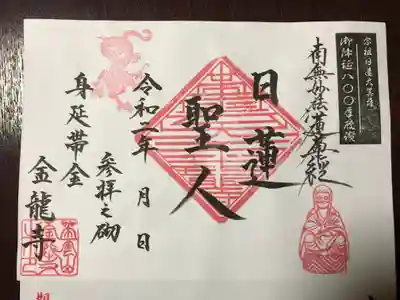 宗祖日蓮大菩薩
御降誕八〇〇年慶讃
南無妙法蓮華経
日蓮
聖人
令和二年 月 日
参拝之砌
身延帯金
金龍寺